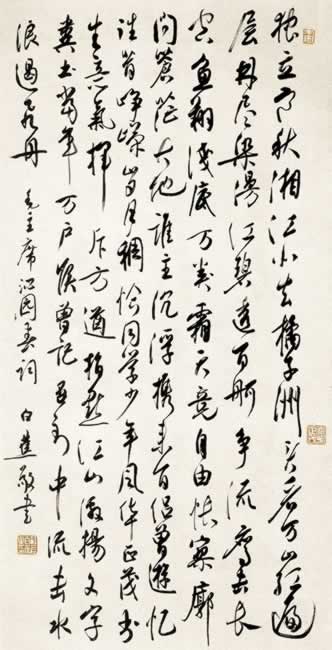 独立寒秋湘江北去橘子洲头看万山红遍
层林尽染漫江碧透百舸争流鹰击长
空鱼翔浅底万类霜天竞自由怅寥廓
问苍茫大地谁主沉浮携来百侣曾游忆
往昔峥嵘岁月稠恰同学少年风华正茂书
生意气挥斥方遒指点江山激扬文字
粪土当年万户侯曾记否到中流击水
浪遏飞舟 毛主席沁园春词 白蕉敬书